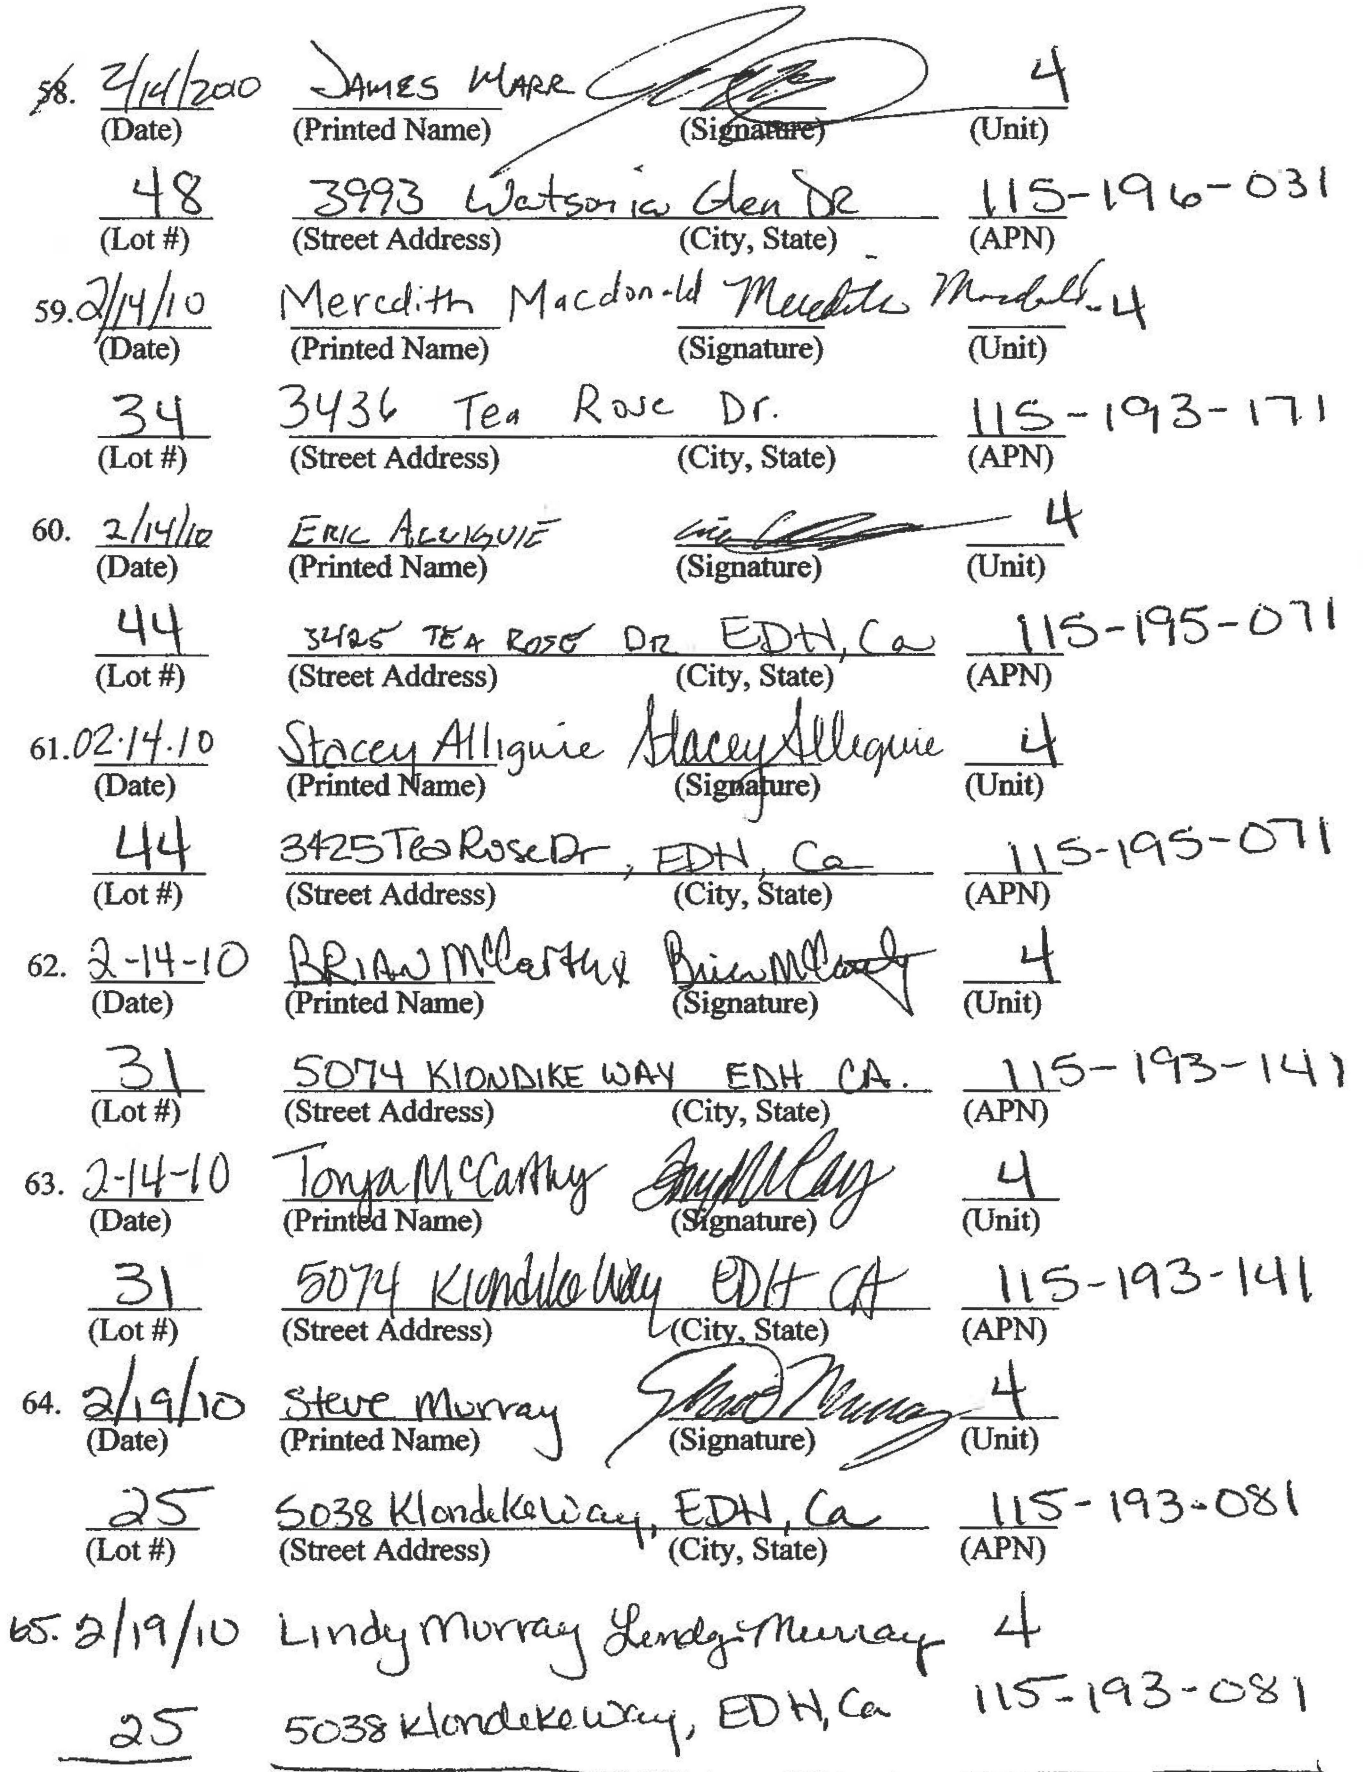 58. 2/14/2010 JAMES MARR 4
(Date) (Printed Name) (Signature) (Unit)
48 3993 Watsonia Glen DR 115-196-031
(Lot #) (Street Address) (City, State) (APN)
59. 2/14/10 Meredith Macdonald Meredith Macdonald 4
(Date) (Printed Name) (Signature) (Unit)
34 3436 Tea Rose Dr. 115-193-171
(Lot #) (Street Address) (City, State) (APN)
60. 2/14/10 ERIC ALLIGUIE 4
(Date) (Printed Name) (Signature) (Unit)
44 3425 TEA ROSE DR EDH, Ca 115-195-071
(Lot #) (Street Address) (City, State) (APN)
61. 02.14.10 Stacey Alliguie Stacey Alliguie 4
(Date) (Printed Name) (Signature) (Unit)
44 3425 Tea Rose Dr, EDH, Ca 115-195-071
(Lot #) (Street Address) (City, State) (APN)
62. 2-14-10 BRIAN McCarthy Brian McCarthy 4
(Date) (Printed Name) (Signature) (Unit)
31 5074 KLONDIKE WAY EDH CA. 115-193-141
(Lot #) (Street Address) (City, State) (APN)
63. 2-14-10 Tonya McCarthy 4
(Date) (Printed Name) (Signature) (Unit)
31 5074 Klondike Way EDH CA 115-193-141
(Lot #) (Street Address) (City, State) (APN)
64. 2/19/10 Steve Murray 4
(Date) (Printed Name) (Signature) (Unit)
25 5038 Klondeke Way, EDH, Ca 115-193-081
(Lot #) (Street Address) (City, State) (APN)
65. 2/19/10 Lindy Murray Lindy Murray 4
25 5038 Klondeke Way, EDH, Ca 115-193-081